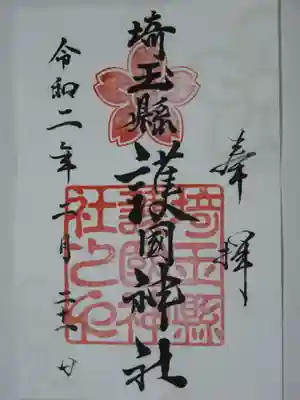 奉拝
埼玉縣護國神社
令和二年二月二十一日
埼玉縣
護國神
社之印